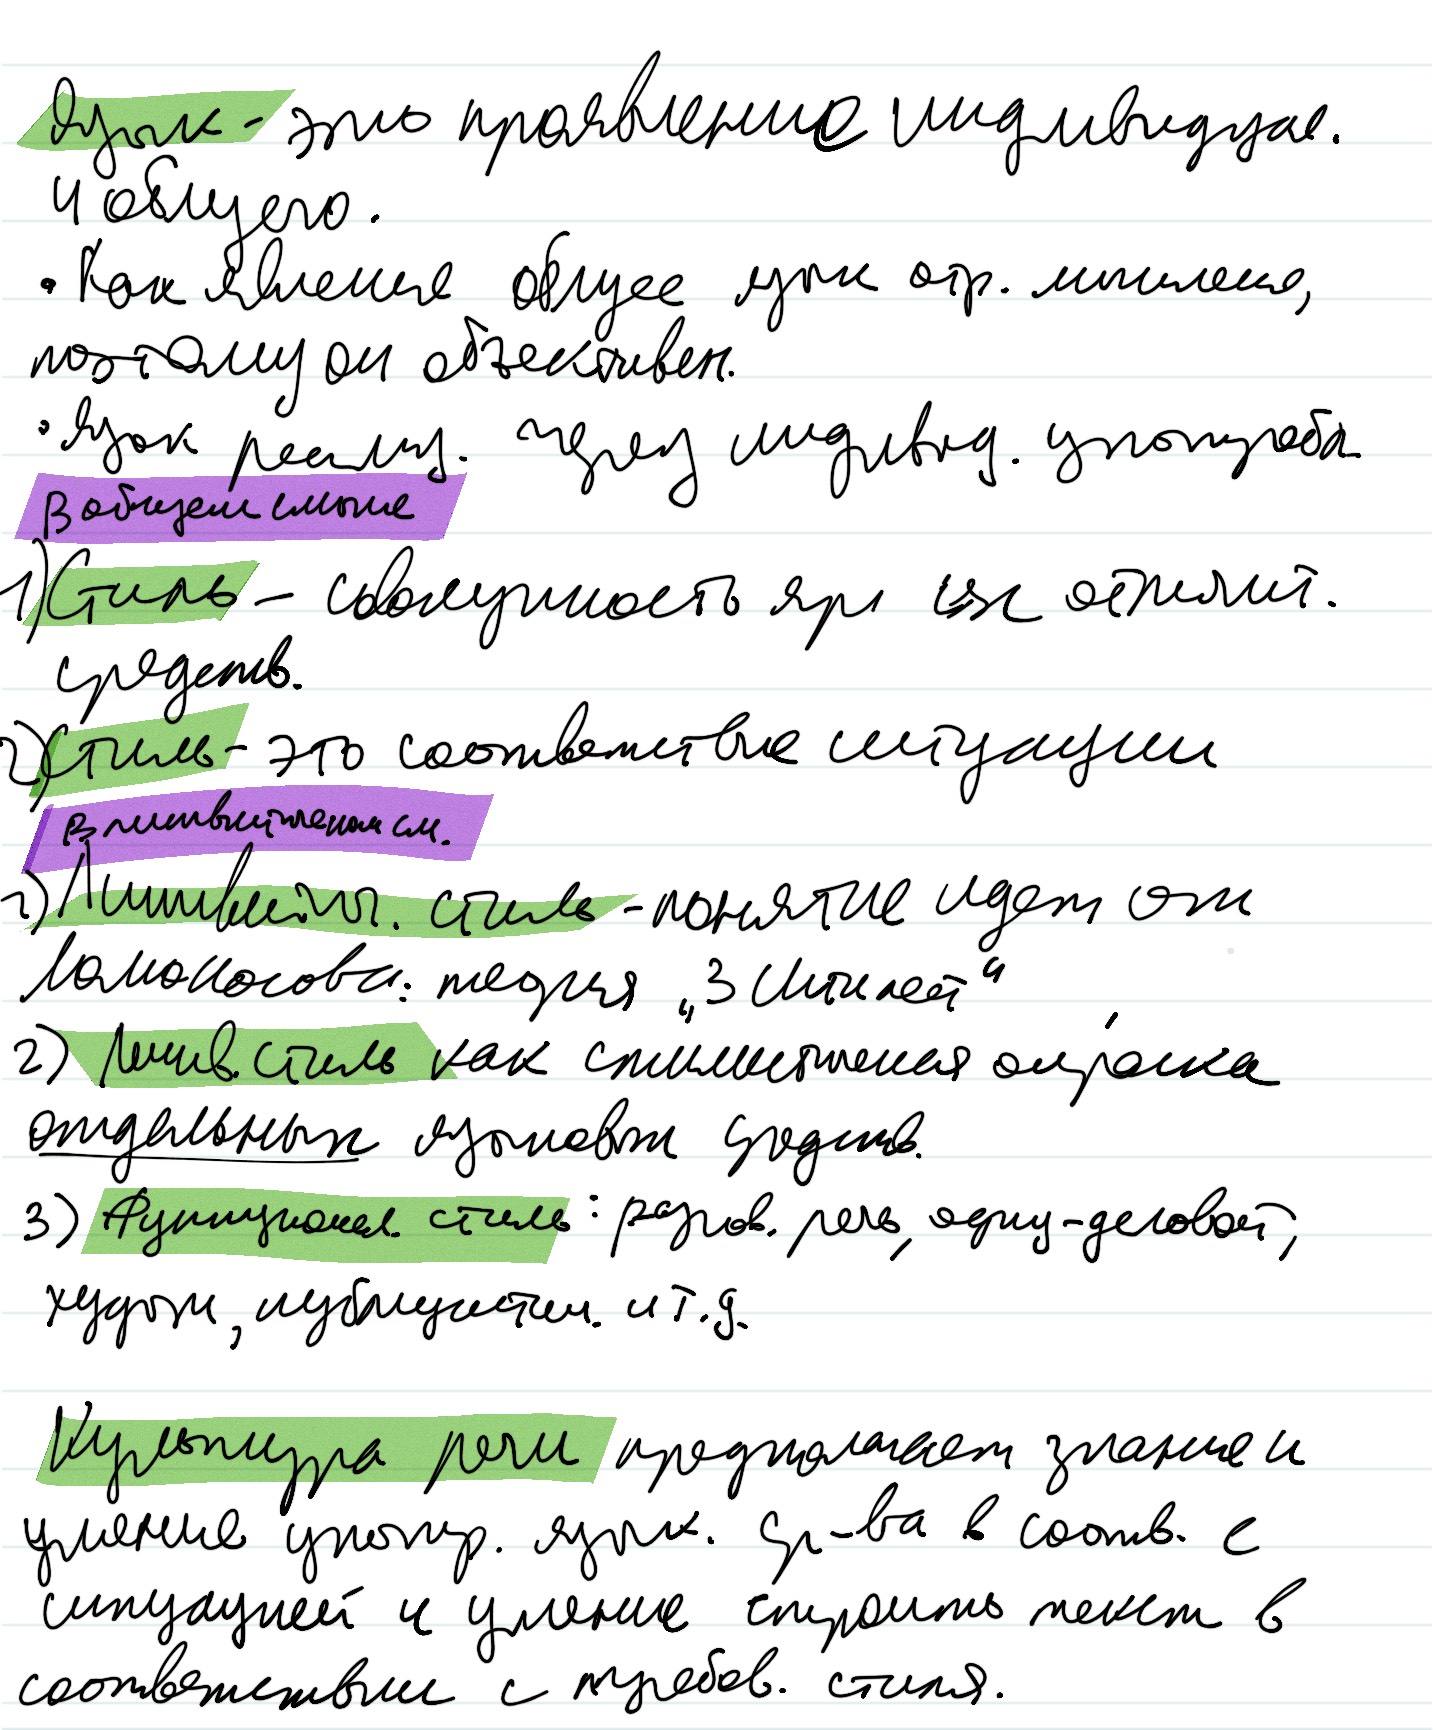 Язык - это проявление индивидуал.
и общего.
• Как явление общее язык отр. мышление,
поэтому он объективен.
• Язык реализ. через индивид. употребл.
В общем смысле
1) Стиль - совокупность отличит.
средств.
2) Стиль - это соответствие ситуации
В лингвистическом см.
1) Лингвист. стиль - понятие идет от
Ломоносова: теория „3 штилей“
2) Лингв. стиль как стилистическая окраска
отдельных языковых средств.
3) Функционал. стиль: разгов. речь, офиц-деловой,
худож, публицистич. и т.д.
Культура речи предполагает знание и
умение употр. язык. ср-ва в соотв. с
ситуацией и умение строить текст в
соответствии с требов. стиля.